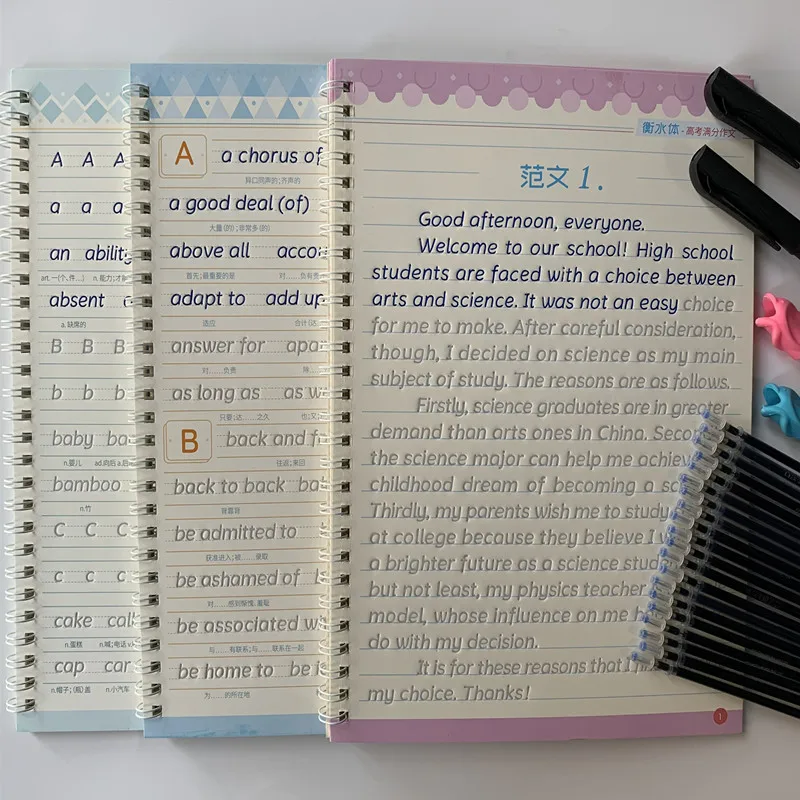 A A A
a a a
an ability
art. 一(个、件...) n.能力;才
absent
a.缺席的
B B B
b b b
baby
n.婴儿 ad.向后 a.后
bamboo
n.竹
C C C
c c c
cake call
n.蛋糕 n.喊;电话 v.
cap car
n.帽子;(瓶)盖 n.小汽车
A a chorus of
异口同声的;齐声的
a good deal (of)
大量(的);非常多(的)
above all acco
首先;最重要的是 对……负有责
adapt to add up
适应 合计(达
answer for apa
对……负责 除
as long as as w
只要;达……之久 也;又
B back and f
往返;来回
back to back ba
背靠背
be admitted to b
获准进入;被……录取
be ashamed of b
对……感到惭愧、羞耻
be associated w
与……有联系;与……联系在一起
be home to be i
为……的所在地
衡水体·高考满分作文
范文 1.
Good afternoon, everyone.
Welcome to our school! High school
students are faced with a choice between
arts and science. It was not an easy choice
for me to make. After careful consideration,
though, I decided on science as my main
subject of study. The reasons are as follows.
Firstly, science graduates are in greater
demand than arts ones in China. Seco
the science major can help me achiev
childhood dream of becoming a sc
Thirdly, my parents wish me to study
at college because they believe I w
a brighter future as a science stud
but not least, my physics teacher
model, whose influence on me h
do with my decision.
It is for these reasons that I
my choice. Thanks!
1